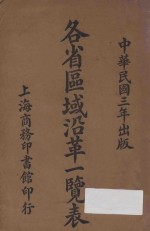 中華民國三年出版
各省區域沿革一覽表
上海商務印書館印行